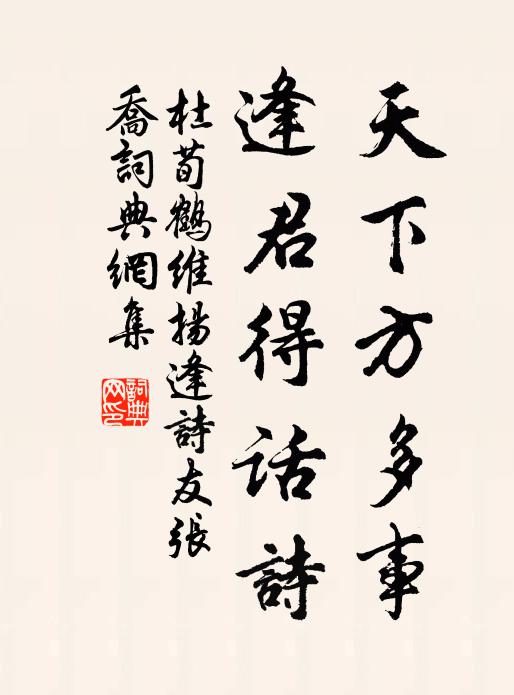 天下方多事
逢君得话詩
杜荀鶴維揚逢詩友張
喬詞典網集
詞典
网印